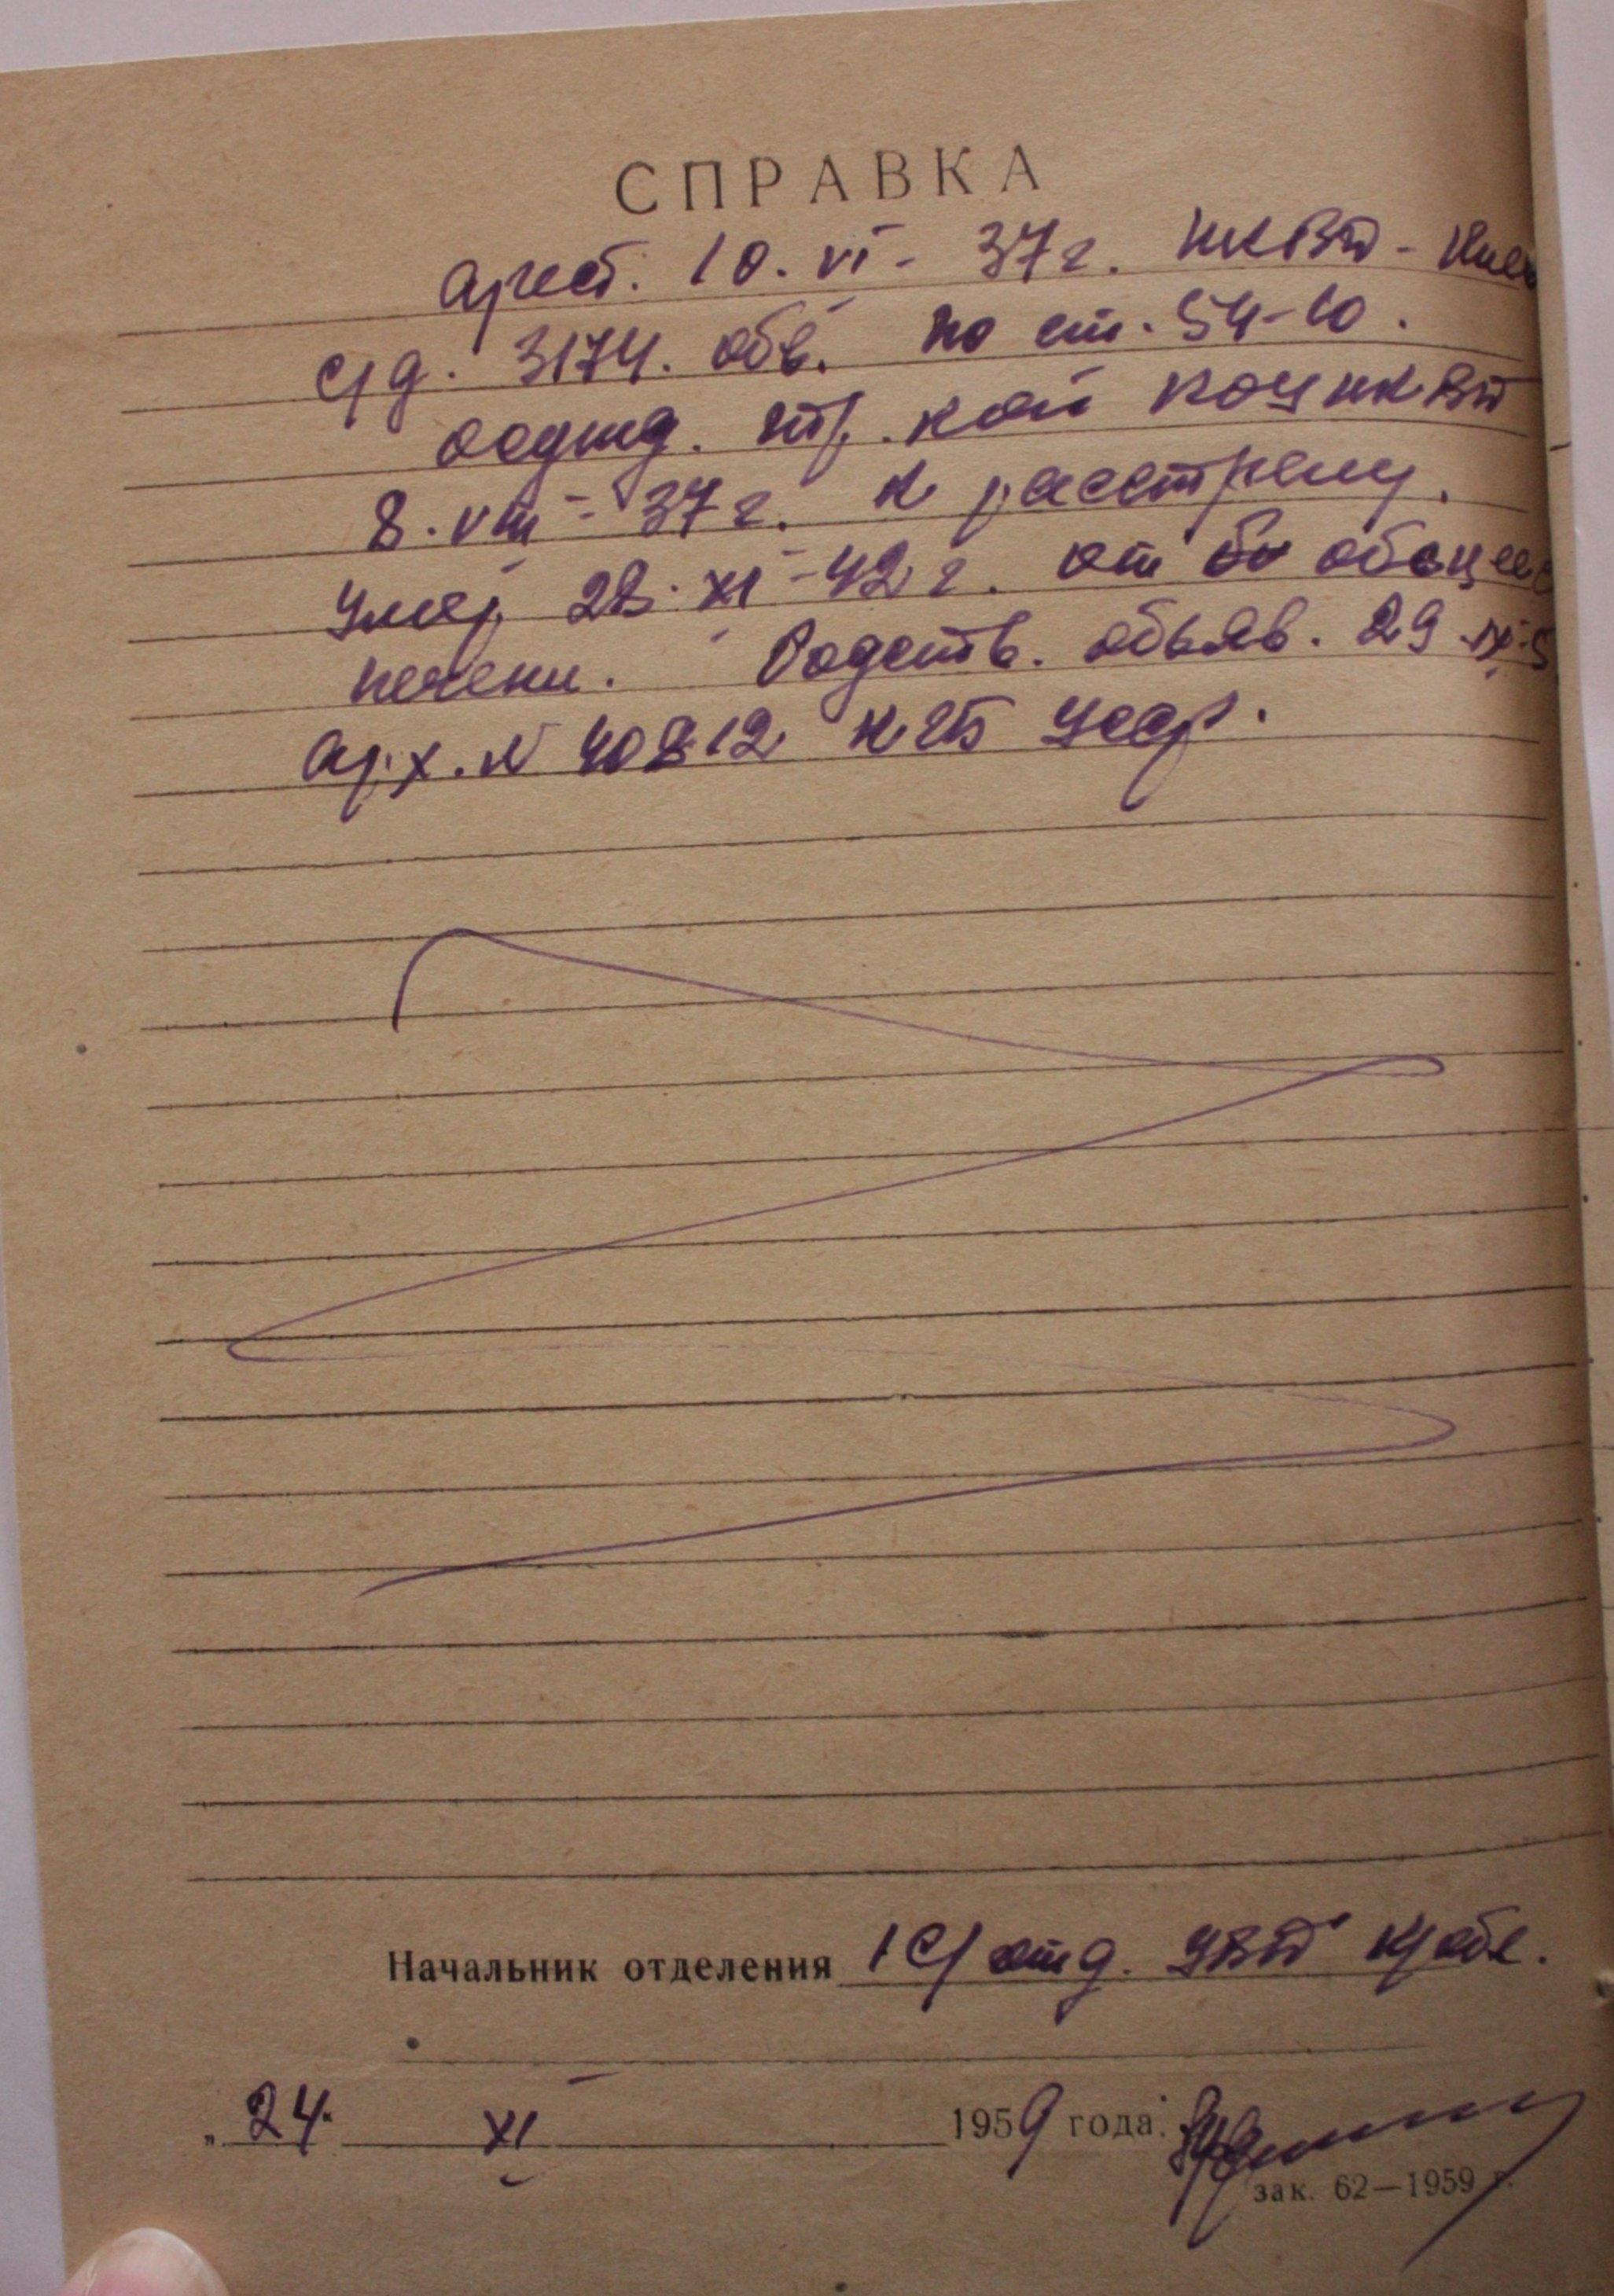 СПРАВКА
арест. 10.VI-37г. НКВД-
с/д. 3174. обв. по ст. 54-10.
осужд. тр. кой КОУНКВД
8.VIII-37г. к расстрелу.
Умер 28.XI-42г. от
печени. Родств. объяв. 29.IX-5
Арх. № 40812 КГБ УССР.
Начальник отделения 1с/отд. УВД Кр обл.
„24. XI 1959 года.
зак. 62—1959 г.